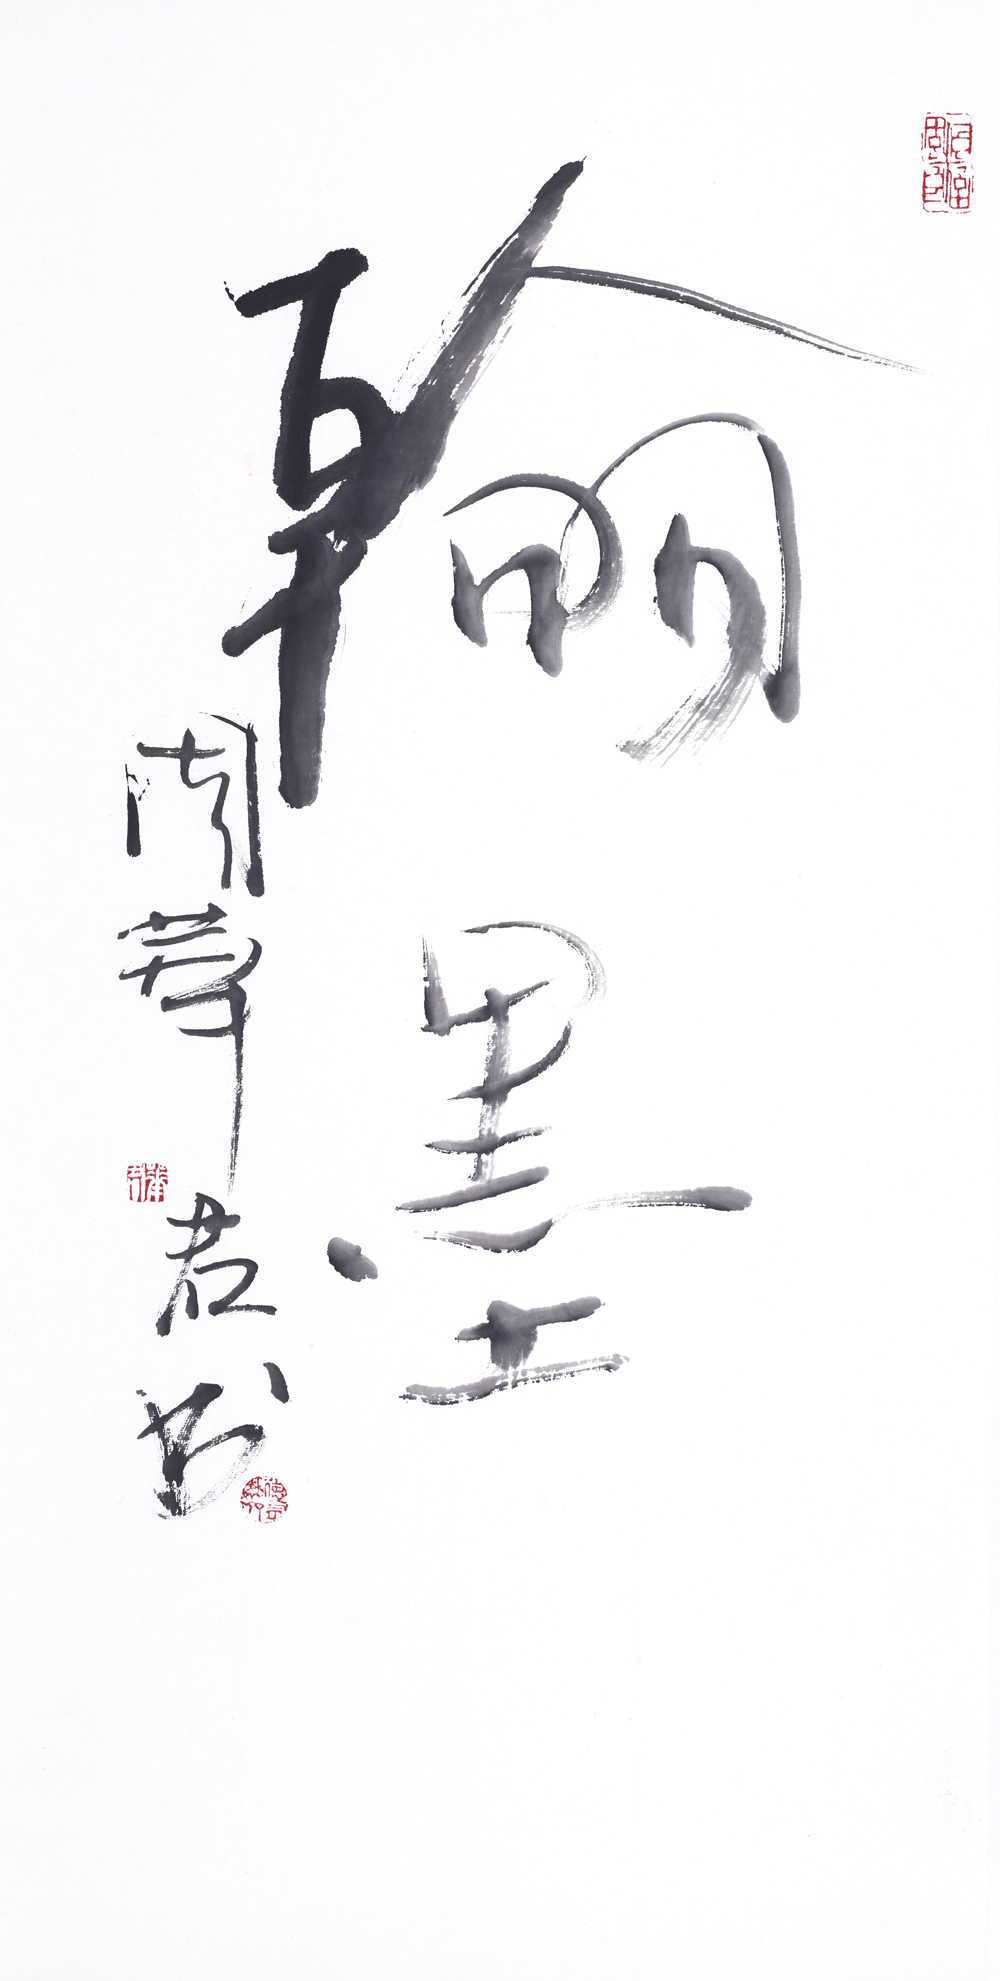 翰墨
周華君书